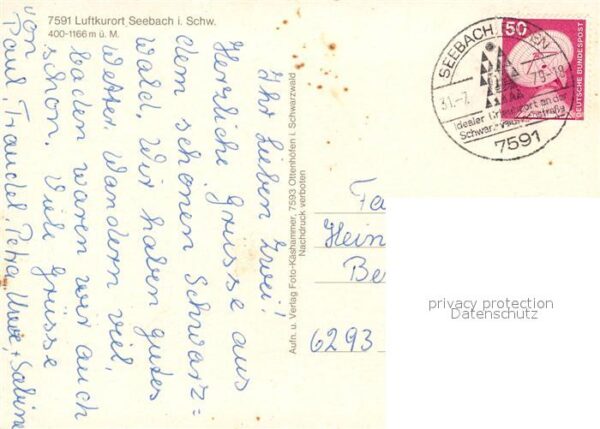 7591 Luftkurort Seebach i. Schw.
400-1166 m ü. M.
Ihr Lieben Zwei!
Herzliche Grüsse aus
dem schönen Schwarz=
wald. Wir haben gutes
Wetter. Wandern viel,
baden waren wir auch
schon. Viele Grüsse
von
Paul, Traudel, Petra, Uwe + Sabine
Aufn. u. Verlag Foto-Käshammer, 7593 Ottenhöfen i. Schwarzwald
Nachdruck verboten
SEEBACH
31.-7. 79-18
Idealer Urlaubsort an der
Schwarzwaldhochstraße
7591
50
DEUTSCHE BUNDESPOST
Fa
Hein
Be
6293
privacy protection
Datenschutz